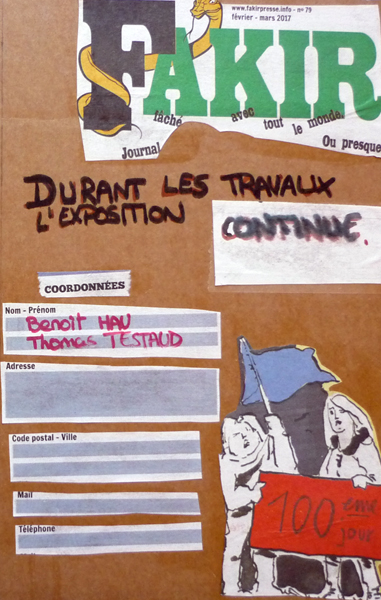 www.fakirpresse.info - n° 79
février - mars 2017
FAKIR
Journal fâché avec tout le monde.
Ou presque
DURANT LES TRAVAUX
L'EXPOSITION CONTINUE.
COORDONNÉES
Nom - Prénom
Benoît HAU
Thomas TESTAUD
Adresse
Code postal - Ville
Mail
Téléphone
100 eme
jour